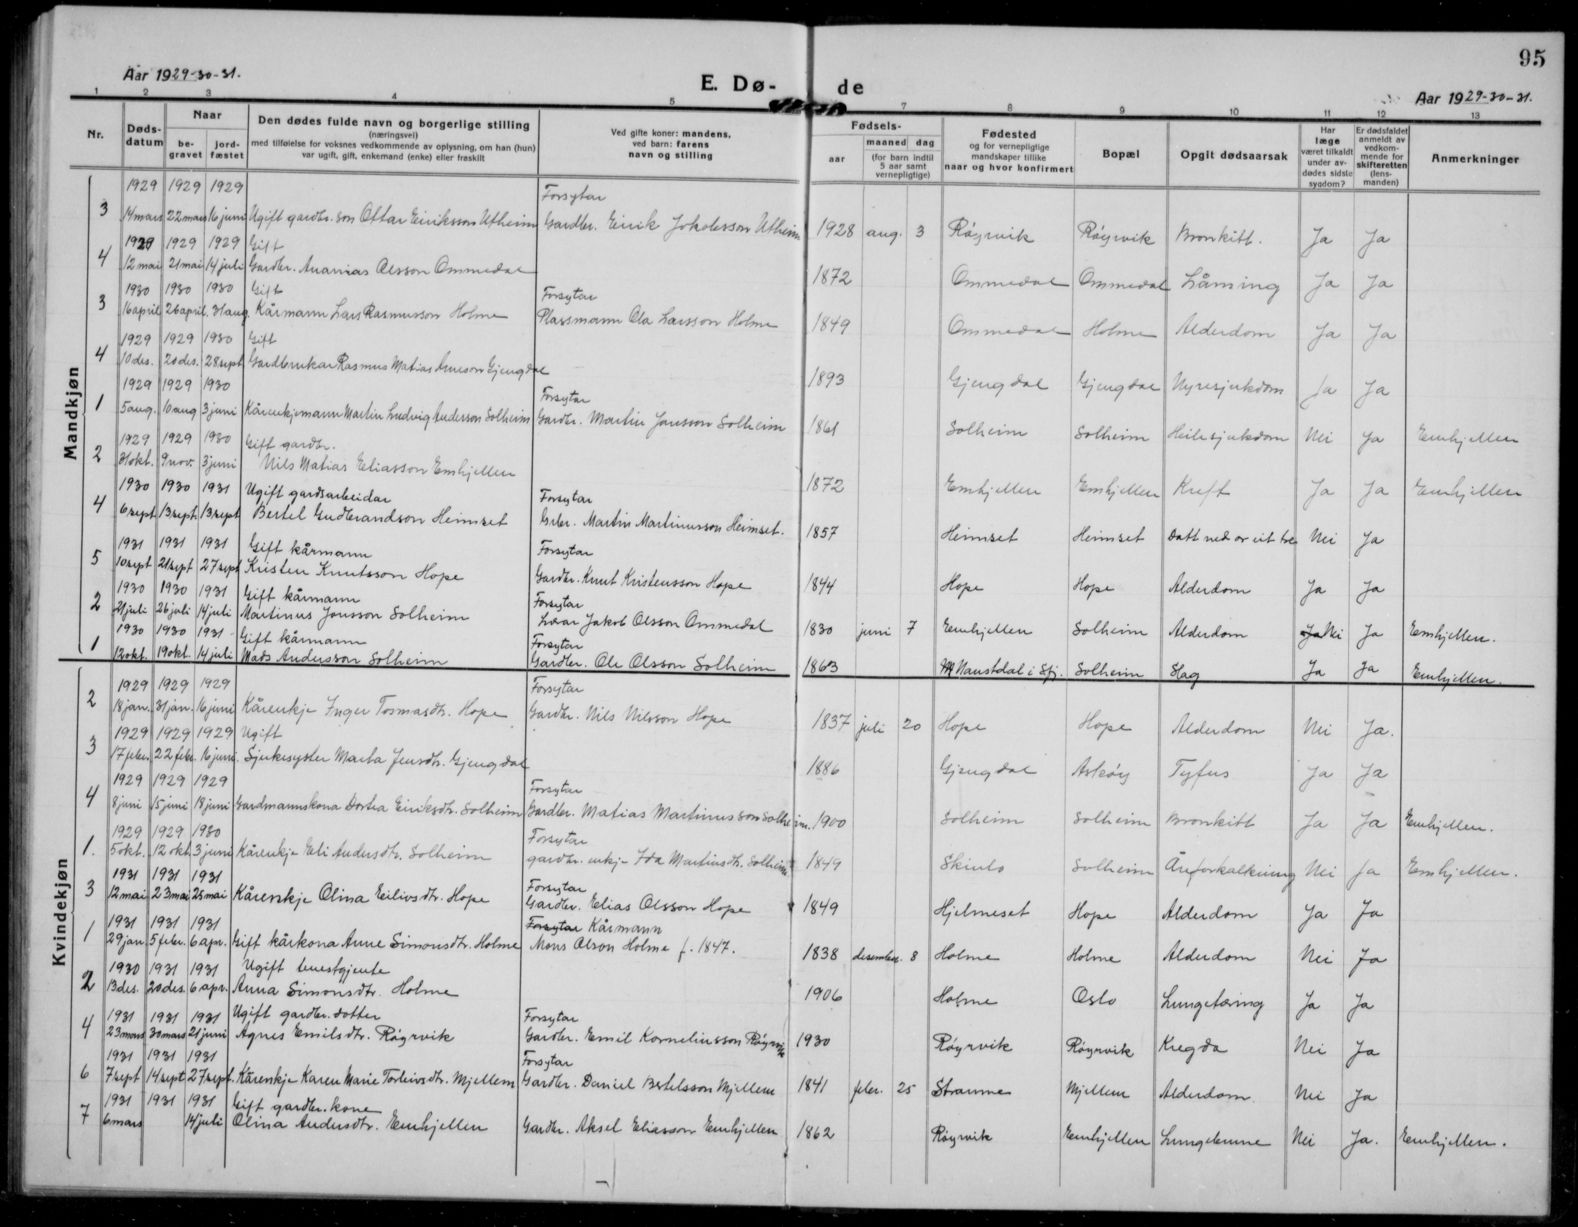 95
Aar 1929-30-31.
E. Dø- de
Aar 1929-30-31.
1 2 3 4 5 7 8 9 10 11 12 13
Nr. Døds-datum Naar be-gravet jord-fæstet Den dødes fulde navn og borgerlige stilling (næringsvei) med tilføielse for voksnes vedkommende av oplysning, om han (hun) var ugift, gift, enkemand (enke) eller fraskilt Ved gifte koner: mandens, ved barn: farens navn og stilling Fødsels- aar maaned dag (for barn indtil 5 aar samt vernepligtige) Fødested og for vernepligtige mandskaper tillike naar og hvor konfirmert Bopæl Opgit dødsaarsak Har læge været tilkaldt under av-dødes sidste sygdom? Er dødsfaldet anmeldt av vedkom-mende for skifteretten (lens-manden) Anmerkninger
Mandkjøn
1929 1929 1929 Forsytar
3 14 mars 22 mars 16 juni Ugift gardbr. son Ottar Eiriksson Utheim Gardbr. Eirik Jakobsson Utheim 1928 aug. 3 Røyrvik Røyrvik Bronkitt. Ja Ja
1929 1929 1929 Gift
4 12 mai 21 mai 14 juli Gardbr. Ananias Olsson Ommedal 1872 Ommedal Ommedal Låming Ja Ja
1930 1930 1930 Gift Forsytar
3 16 april 26 april 31 aug. Kårmann Lars Rasmusson Holme Plassmann Ola Larsson Holme 1849 Ommedal Holme Alderdom Ja Ja
1929 1929 1930 Gift
4 10 des. 20 des. 28 sept Gardbrukar Rasmus Matias Arneson Gjengdal 1893 Gjengdal Gjengdal Nyresjukdom Ja Ja
1929 1929 1930 Forsytar
1 5 aug. 10 aug 3 juni Kårenkjemann Martin Ludvig Anderson Solheim Gardbr. Martin Jonsson Solheim 1861 Solheim Solheim Heilesjukdom Nei Ja Emhjellen
1929 1929 1930 Gift gardbr.
2 31 okt. 9 nov. 3 juni Nils Matias Eliasson Emhjellen 1872 Emhjellen Emhjellen Kreft Ja Ja Emhjellen
1930 1930 1931 Ugift gardsarbeidar Forsytar
4 6 sept 13 sept. 13 sept Bertel Gudbrandson Heimset Grbr. Martin Martinusson Heimset. 1857 Heimset Heimset Datt ned or eit tre Nei Ja
1931 1931 1931 Gift kårmann Forsytar
5 10 sept 21 sept 27 sept Kristen Knutsson Hope Gardbr. Knut Kristensson Hope 1844 Hope Hope Alderdom Ja Ja
1930 1930 1931 Gift kårmann Forsytar
2 21 juli 26 juli 14 juli Martinus Jonsson Solheim Lærar Jakob Olsson Ommedal 1830 juni 7 Emhjellen Solheim Alderdom Ja Nei Ja Emhjellen.
1930 1930 1931 Gift kårmann Forsytar
1 12 okt. 19 okt. 14 juli Mads Andersson Solheim Gardbr. Ole Olsson Solheim 1863 Naustdal i Sfj. Solheim Slag Ja Ja Emhjellen.
Kvindekjøn
1929 1929 1929 Forsytar
2 18 jan. 31 jan. 16 juni Kårenkje Inger Tosmasdtr. Hope Gardbr. Nils Nilsson Hope 1837 juli 20 Hope Hope Alderdom Nei Ja.
1929 1929 1929 Ugift
3 17 febr. 22 febr. 16 juni. Sjukesyster Marta Jensdtr. Gjengdal 1886 Gjengdal Askøy Tyfus Ja Ja
1929 1929 1929 Forsytar
4 8 juni 15 juni 18 juni Gardmannskona Dortea Eiriksdtr. Solheim Gardbr. Matias Martinusson Solheim. 1900 Solheim Solheim Bronkitt Ja Ja Emhjellen.
1929 1929 1930 Forsytar
1. 5 okt. 12 okt. 3 juni Kårenkje Eli Andersdtr. Solheim gardbr. enkje Ida Martinsdtr. Solheim 1849 Solheim Åreforkalkning Nei Ja Emhjellen.
1931 1931 1931 Forsytar
3 12 mai 23 mai 25 mai Kårenkje Olina Eilivsdtr. Hope Gardbr. Elias Olsson Hope 1849 Hjelmeset Hope Alderdom Ja Ja
1931 1931 1931 Forsytar Kårmann
1 29 jan. 5 febr. 6 apr. Gift kårkona Anne Simonsdtr. Holme Mons Olson Holme f. 1847. 1838 desember. 8 Holme Holme Alderdom Nei Ja
1930 1931 1931 Ugift tenestgjente
2 13 des. 20 des. 6 apr. Anna Simonsdtr. Holme 1906 Holme Oslo Lungetæring Ja Ja
1931 1931 1931 Ugift gardbr. dotter Forsytar
4 23 mars 30 mars 21 juni Agnes Emilsdtr. Røyrvik Gardbr. Emil Korneliusson Røyrvik 1930 Røyrvik Røyrvik Kregda Nei Ja
1931 1931 1931 Forsytar
6 7 sept 14 sept 27 sept. Kårenkje Karen Marie Torleivsdtr. Mjellem Gardbr. Daniel Bertelsson Mjellem 1841 febr. 25 Straume Mjellem Alderdom. Nei Ja
1931 1931 1931 Gift gardbr. kone
7 6 mars 14 juli Olina Andersdtr. Emhjellen Gardbr. Aksel Eliasson Emhjellen 1862 Røyrvik Emhjellen Lungebenne Nei Ja. Emhjellen.